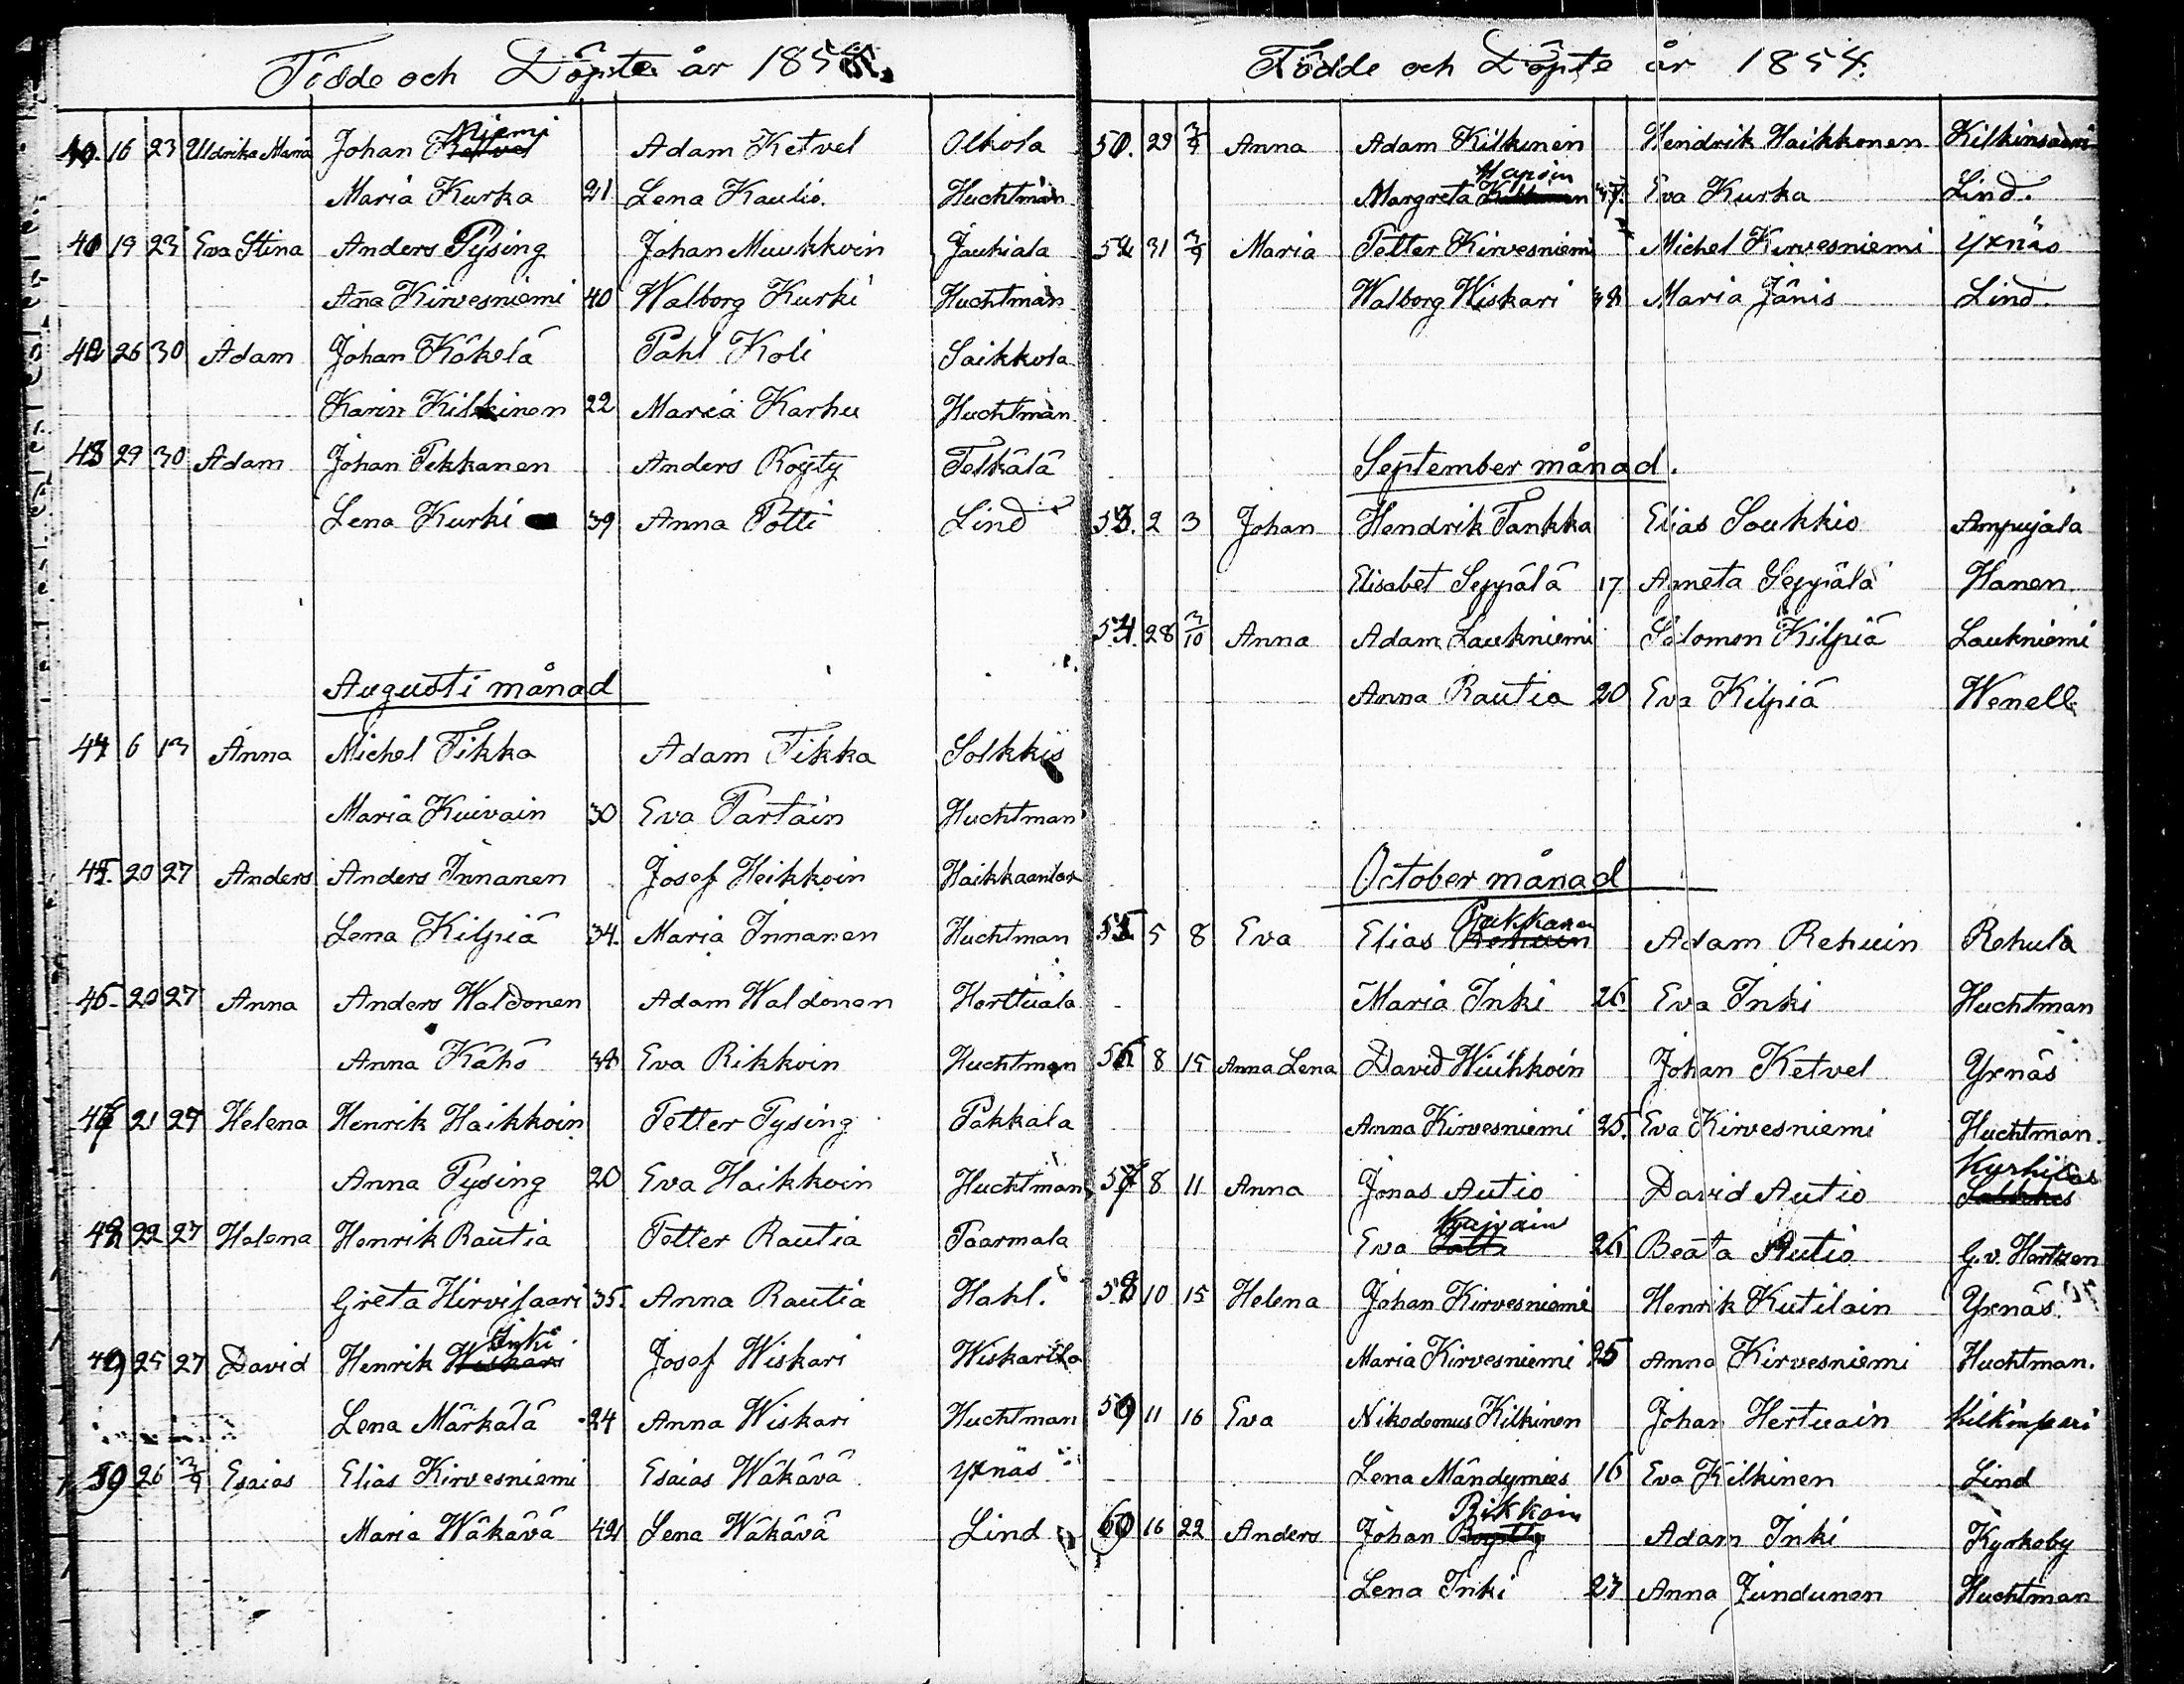 Födde och Döpte år 185
16 23 Uldrika Maria Johan Niemi Adam Ketvel Olkola
Maria Kurka 21 Lena Kaulio. Huchtman
19 23 Eva Stina Anders Pysing Johan Muukkoin Jauhiala
Anna Kirvesniemi 40 Walborg Kurki Huchtman
26 30 Adam Johan Käkelä Pahl Koli Saikkola
Karin Kilkinen 22 Maria Karhu Huchtman
43 29 30 Adam Johan Pekkanen Anders Röyty Telkälä
Lena Kurki 39 Anna Potti Lind
Augusti månad
44 6 13 Anna Michel Tikka Adam Tikka Solkkis
Maria Kuivain 30 Eva Partain Huchtman
45. 20 27 Anders Anders Innanen Josef Heikkoin
Lena Kilpiä 34. Maria Innanen Huchtman
46. 20 27 Anna Anders Waldonen Adam Waldonen Herttuala
Anna Kähö Eva Rikkoin Huchtman
47 21 27 Helena Henrik Haikkoin Petter Pysing Pakkala
Anna Pysing 20 Eva Haikkoin Huchtman
48 22 27 Helena Henrik Rautia Petter Rautia Paarmala
Greta Hirvisaari 35. Anna Rautia Hahl.
49 25 27 David Henrik Inki Wiskari Josef Wiskari Wiskarila
Lena Märkälä 24 Anna Wiskari Huchtman
26 3/9 Esaias Elias Kirvesniemi Esaias Wäkävä Yxnäs
Maria Wäkävä 42 Lena Wäkävä Lind
Födde och Döpte år 1854.
50. 29 3/9 Anna Adam Kilkinen Hendrik Haikkonen Kilkinsaari
Margreta Hapoin Eva Kurka Lind.
31 3/9 Maria Petter Kirvesniemi Michel Kirvesniemi Yxnäs
Walborg Wiskari 38 Maria Jänis Lind.
September månad.
53. 2 3 Johan Hendrik Tankka Elias Soukkio Ampujala
Elisabet Seppälä 17 Agneta Seppälä Hanen
54. 28 3/10 Anna Adam Laukniemi Salomon Kilpiä Laukniemi
Anna Rautia 20 Eva Kilpiä Wenell
October månad
55 5 8 Eva Elias Pukkanen Rehuin Adam Rehuin Rehula
Maria Inki 26. Eva Inki Huchtman
56 8 15 Anna Lena David Wiuhkoin Johan Ketvel Yxnäs
Anna Kirvesniemi 25. Eva Kirvesniemi Huchtman.
57 8 11 Anna Jonas Autio David Autio Kurhilas
Eva Kuivain 26 Beata Autio G. v. Hertzen
58 10 15 Helena Johan Kirvesniemi Henrik Kutilain Yxnäs
Maria Kirvesniemi 25 Anna Kirvesniemi Huchtman.
59 11 16 Eva Nikodemus Kilkinen Johan Hertuain
Lena Mändymies 16 Eva Kilkinen Lind
60 16 22 Anders Johan Rikkoin Adam Inki Kyrkoby
Lena Inki 27 Anna Jundunen Huchtman